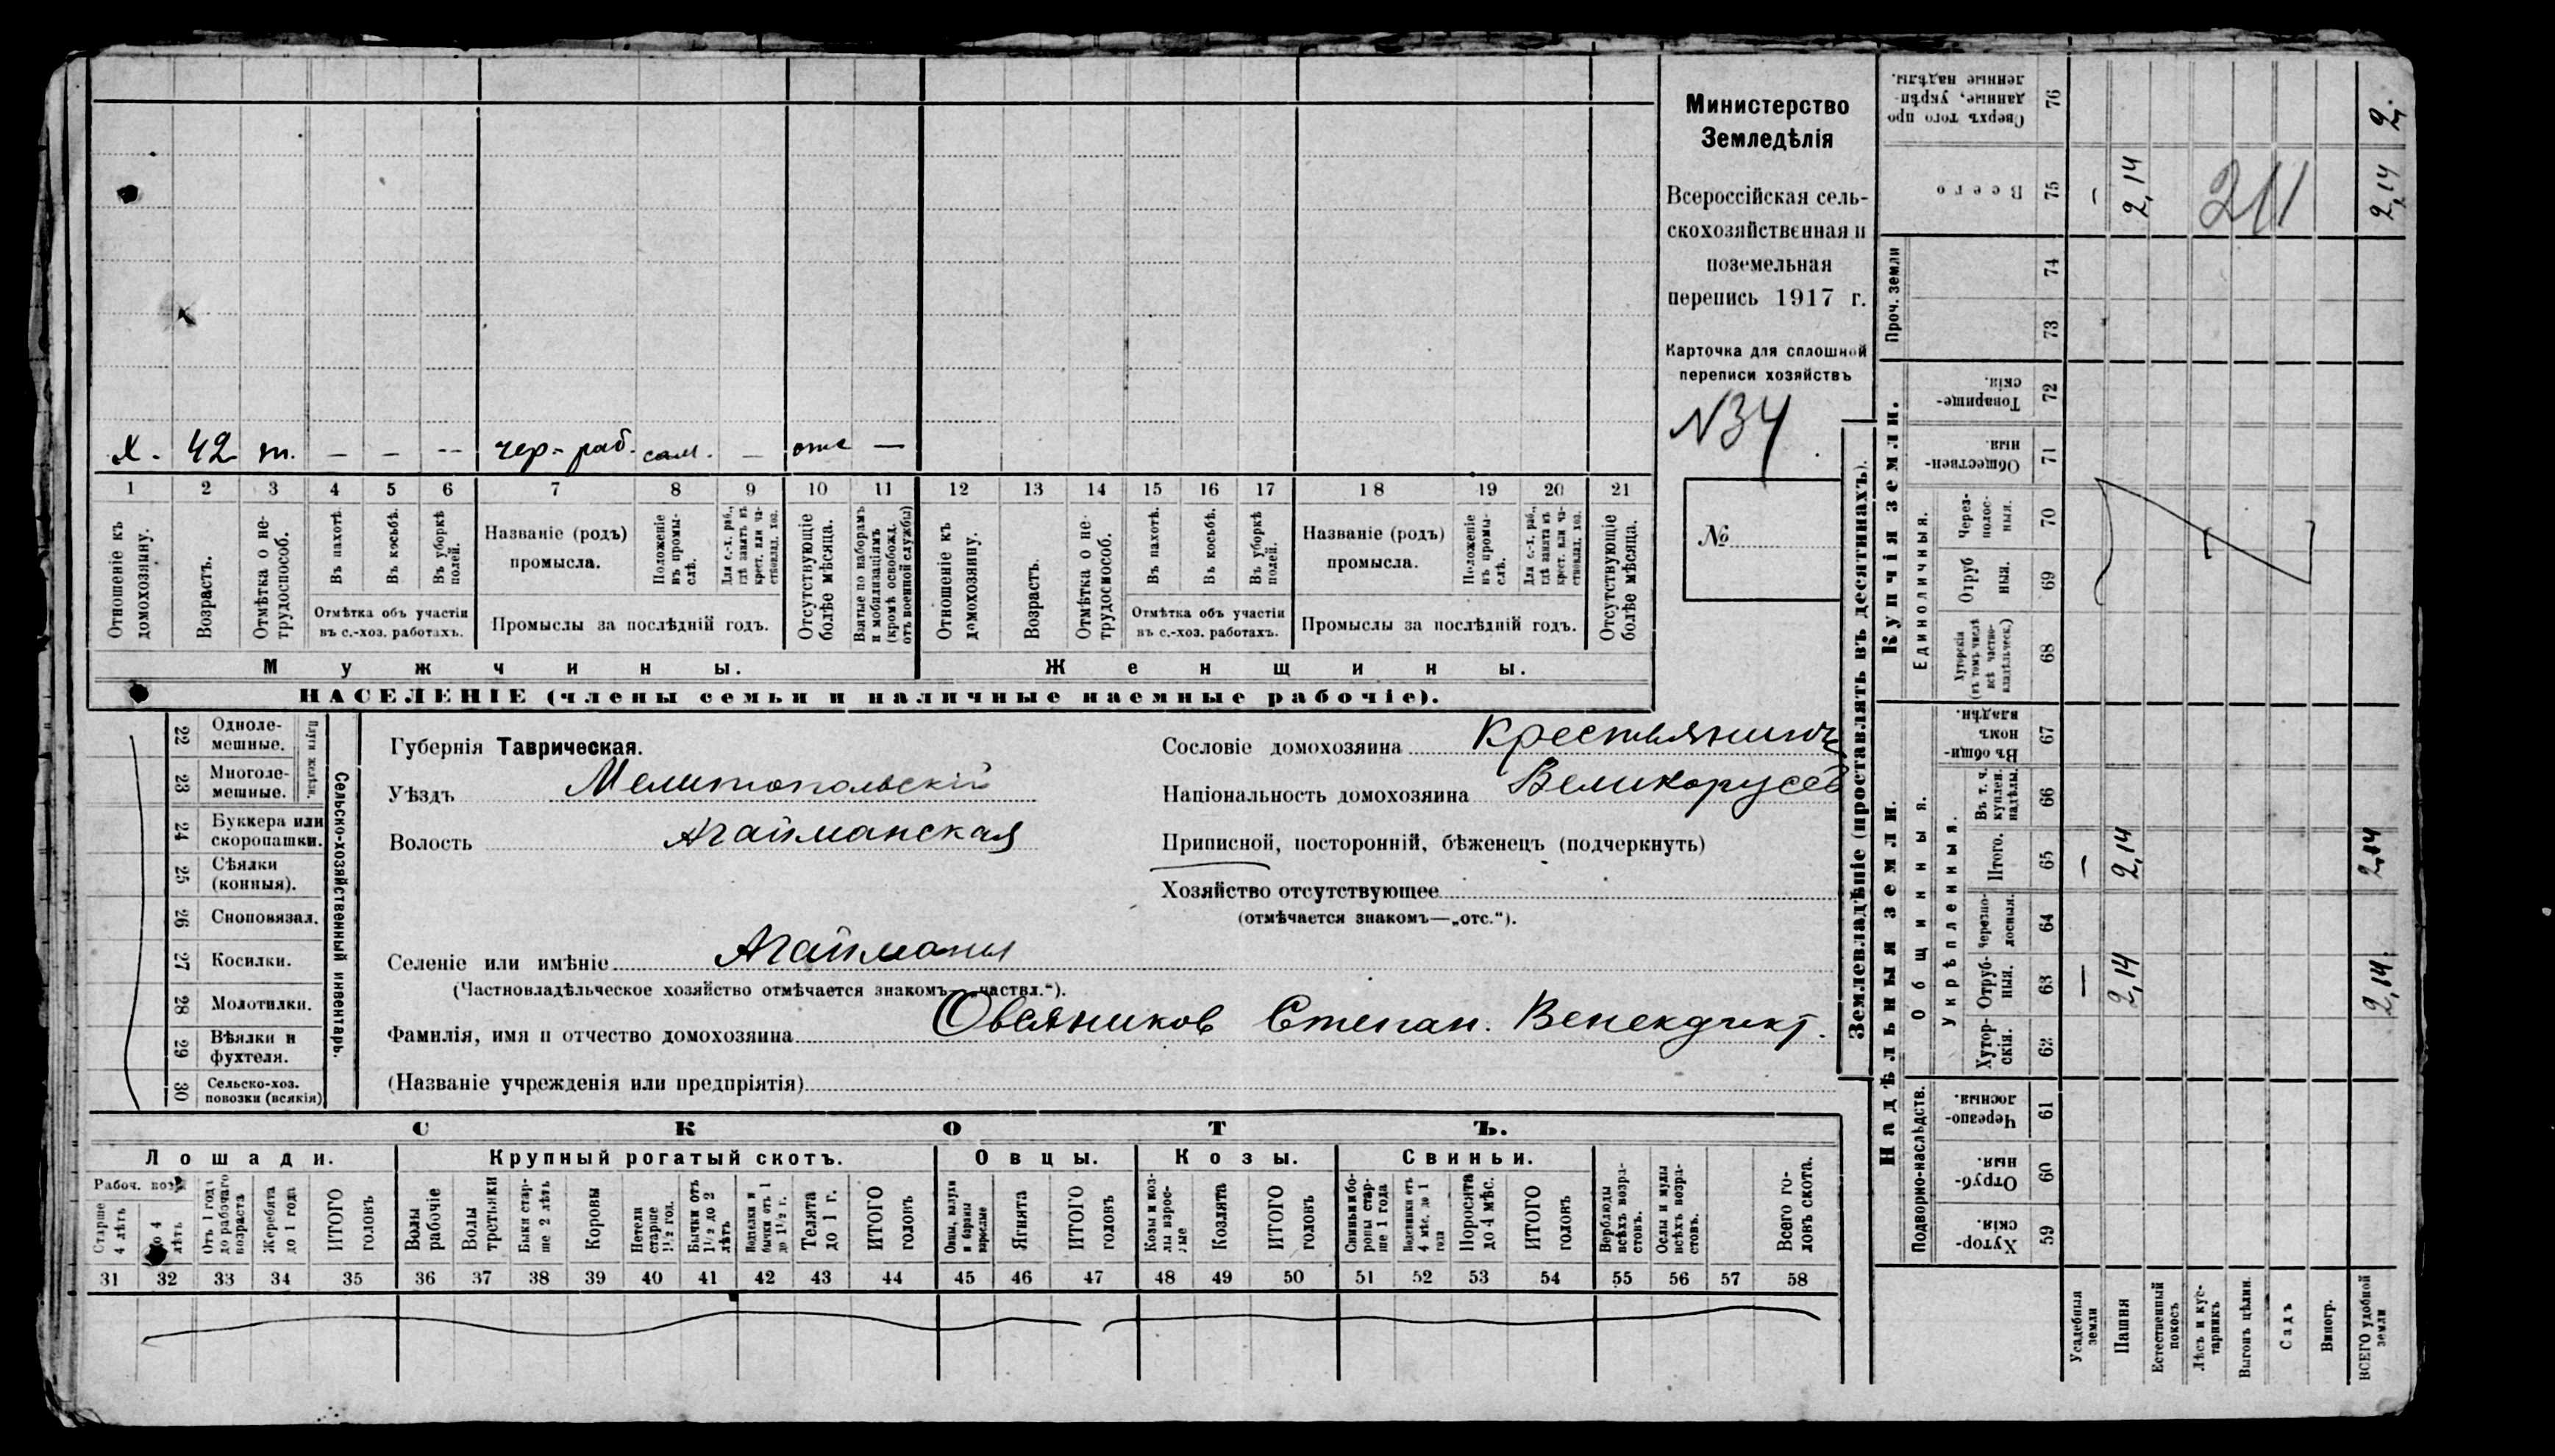 х. 42 т. — — -- чер-раб. сам. — отс —
1 2 3 4 5 6 7 8 9 10 11 12 13 14 15 16 17 18 19 20 21
Отношеніе къ домохозяину.
Возрастъ.
Отмѣтка о нетрудоспособ.
Въ пахотѣ.
Въ косьбѣ.
Въ уборкѣ полей.
Отмѣтка объ участіи
въ с.-хоз. работахъ.
Названіе (родъ)
промысла.
Положеніе въ промыслѣ.
Для с.-х. раб., гдѣ занятъ въ крест. или частновлад. хоз.
Промыслы за послѣдній годъ.
Отсутствующіе болѣе мѣсяца.
Взятые по наборамъ и мобилизаціямъ (кромѣ освобожд. отъ военной службы)
Отношеніе къ домохозяину.
Возрастъ.
Отмѣтка о нетрудоспособ.
Въ пахотѣ.
Въ косьбѣ.
Въ уборкѣ полей.
Отмѣтка объ участіи
въ с.-хоз. работахъ.
Названіе (родъ)
промысла.
Положеніе въ промыслѣ.
Для с.-х. раб., гдѣ занята въ крест. или частновлад. хоз.
Промыслы за послѣдній годъ.
Отсутствующіе болѣе мѣсяца.
Мужчины.
Женщины.
НАСЕЛЕНІЕ (члены семьи и наличные наемные рабочіе).
Министерство
Земледѣлія
Всероссійская сель-
скохозяйственная и
поземельная
перепись 1917 г.
Карточка для сплошной
переписи хозяйствъ
N34
№
22 Одноле-
мешные.
23 Многоле-
мешные.
Плуги желѣзн.
24 Буккера или
скоропашки.
25 Сѣялки
(конныя).
26 Сноповязал.
27 Косилки.
28 Молотилки.
29 Вѣялки и
фухтеля.
30 Сельско-хоз.
повозки (всякія)
Сельско-хозяйственный инвентарь.
Губернія Таврическая.
Уѣздъ Мелитопольскій
Волость Агайманская
Селеніе или имѣніе Агайманы
(Частновладѣльческое хозяйство отмѣчается знакомъ—„частвл.“).
Фамилія, имя и отчество домохозяина Овсяников Степан. Венекдикт.
(Названіе учрежденія или предпріятія)
Сословіе домохозяина Крестьянинъ
Національность домохозяина Великорусс
Приписной, посторонній, бѣженецъ (подчеркнуть)
Хозяйство отсутствующее
(отмѣчается знакомъ—„отс.“).
СКОТЪ.
Лошади. Крупный рогатый скотъ. Овцы. Козы. Свиньи.
Рабоч. возр
Старше 4 лѣтъ
До 4 лѣтъ
Отъ 1 года до рабочаго возраста
Жеребята до 1 года
ИТОГО головъ
Волы рабочіе
Волы третьяки
Быки старше 2 лѣтъ
Коровы
Нетели старше 1½ год.
Бычки отъ 1½ до 2 лѣтъ
Подтелки и бычки отъ 1 до 1½ г.
Телята до 1 г.
ИТОГО головъ
Овцы, валухи и бараны взрослые
Ягнята
ИТОГО головъ
Козы и козлы взрослые
Козлята
ИТОГО головъ
Свиньи и боровы старше 1 года
Подсвинки отъ 4 мѣс. до 1 года
Поросята до 4 мѣс.
ИТОГО головъ
Верблюды всѣхъ возрастовъ.
Ослы и мулы всѣхъ возрастовъ.
Всего головъ скота.
31 32 33 34 35 36 37 38 39 40 41 42 43 44 45 46 47 48 49 50 51 52 53 54 55 56 57 58
Землевладѣніе (проставлять въ десятинахъ).
Надѣльныя земли.
Подворно-наслѣдств.
Хуторскія. 59
Отрубныя. 60
Черезполосныя. 61
Общинныя.
Укрѣпленныя.
Хуторскія. 62
Отрубныя. 63 — 2,14 2,14
Черезполосныя. 64
Итого. 65 — 2,14 2,14
Въ т. ч. куплен. надѣлы. 66
Въ общинномъ владѣн. 67
Купчія земли.
Единоличныя.
Хуторскія (въ томъ числѣ всѣ частновладѣльческ.) 68
Отрубныя. 69
Черезполосныя. 70
Общественныя. 71
Товарищескія. 72
Проч. земли
73
74
Всего 75 — 2,14 211 2,14
Сверхъ того проданные, укрѣпленные надѣлы. 76 2.
Усадебныя земли
Пашня
Естественный покосъ
Лѣсъ и кустарникъ
Выгонъ цѣлин.
Садъ
Виногр.
ВСЕГО удобной земли